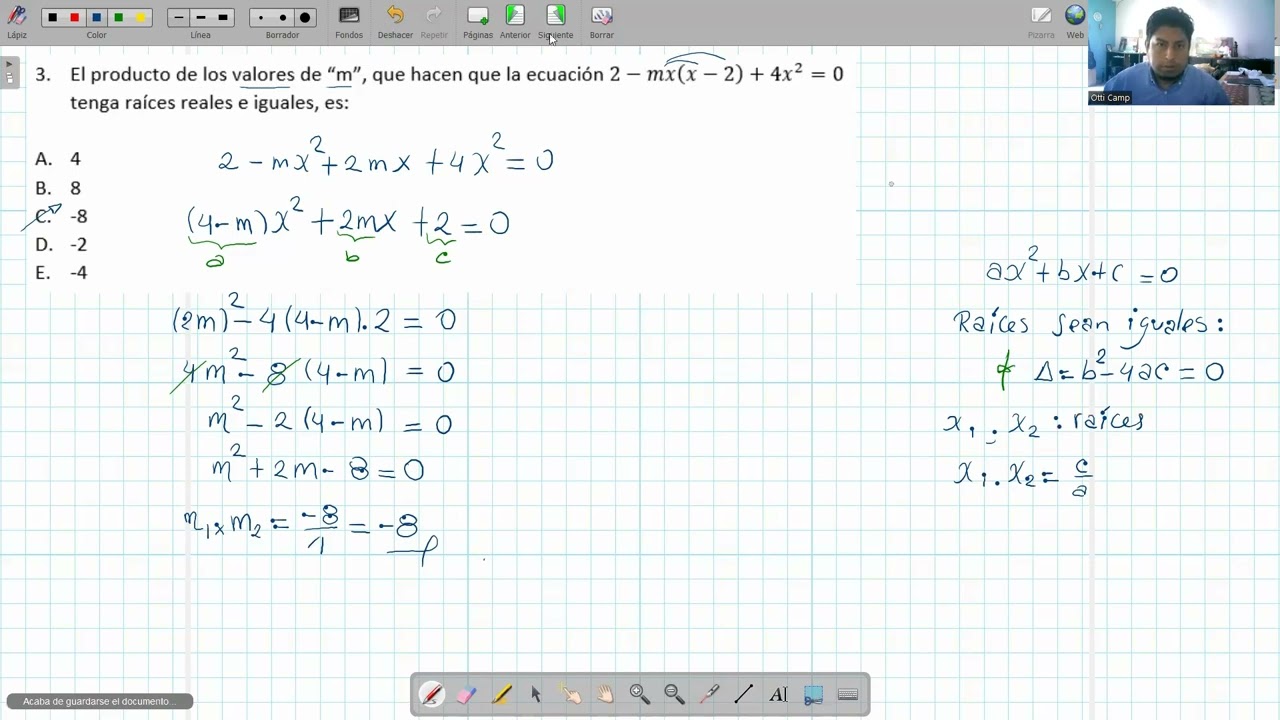 Lápiz Color Línea Borrador Fondos Deshacer Repetir Páginas Anterior Siguiente Borrar Pizarra Web
Otti Camp
3. El producto de los valores de “m”, que hacen que la ecuación 2 − mx(x − 2) + 4x² = 0
tenga raíces reales e iguales, es:
A. 4
B. 8
C. -8
D. -2
E. -4
2 - mx² + 2mx + 4x² = 0
(4-m)x² + 2mx + 2 = 0
a b c
(2m)² - 4(4-m).2 = 0
4m² - 8(4-m) = 0
m² - 2(4-m) = 0
m² + 2m - 8 = 0
m₁ x m₂ = -8/1 = -8
ax² + bx + c = 0
Raíces sean iguales:
Δ = b² - 4ac = 0
x₁ . x₂ : raíces
x₁ . x₂ = c/a
AI
Acaba de guardarse el documento...